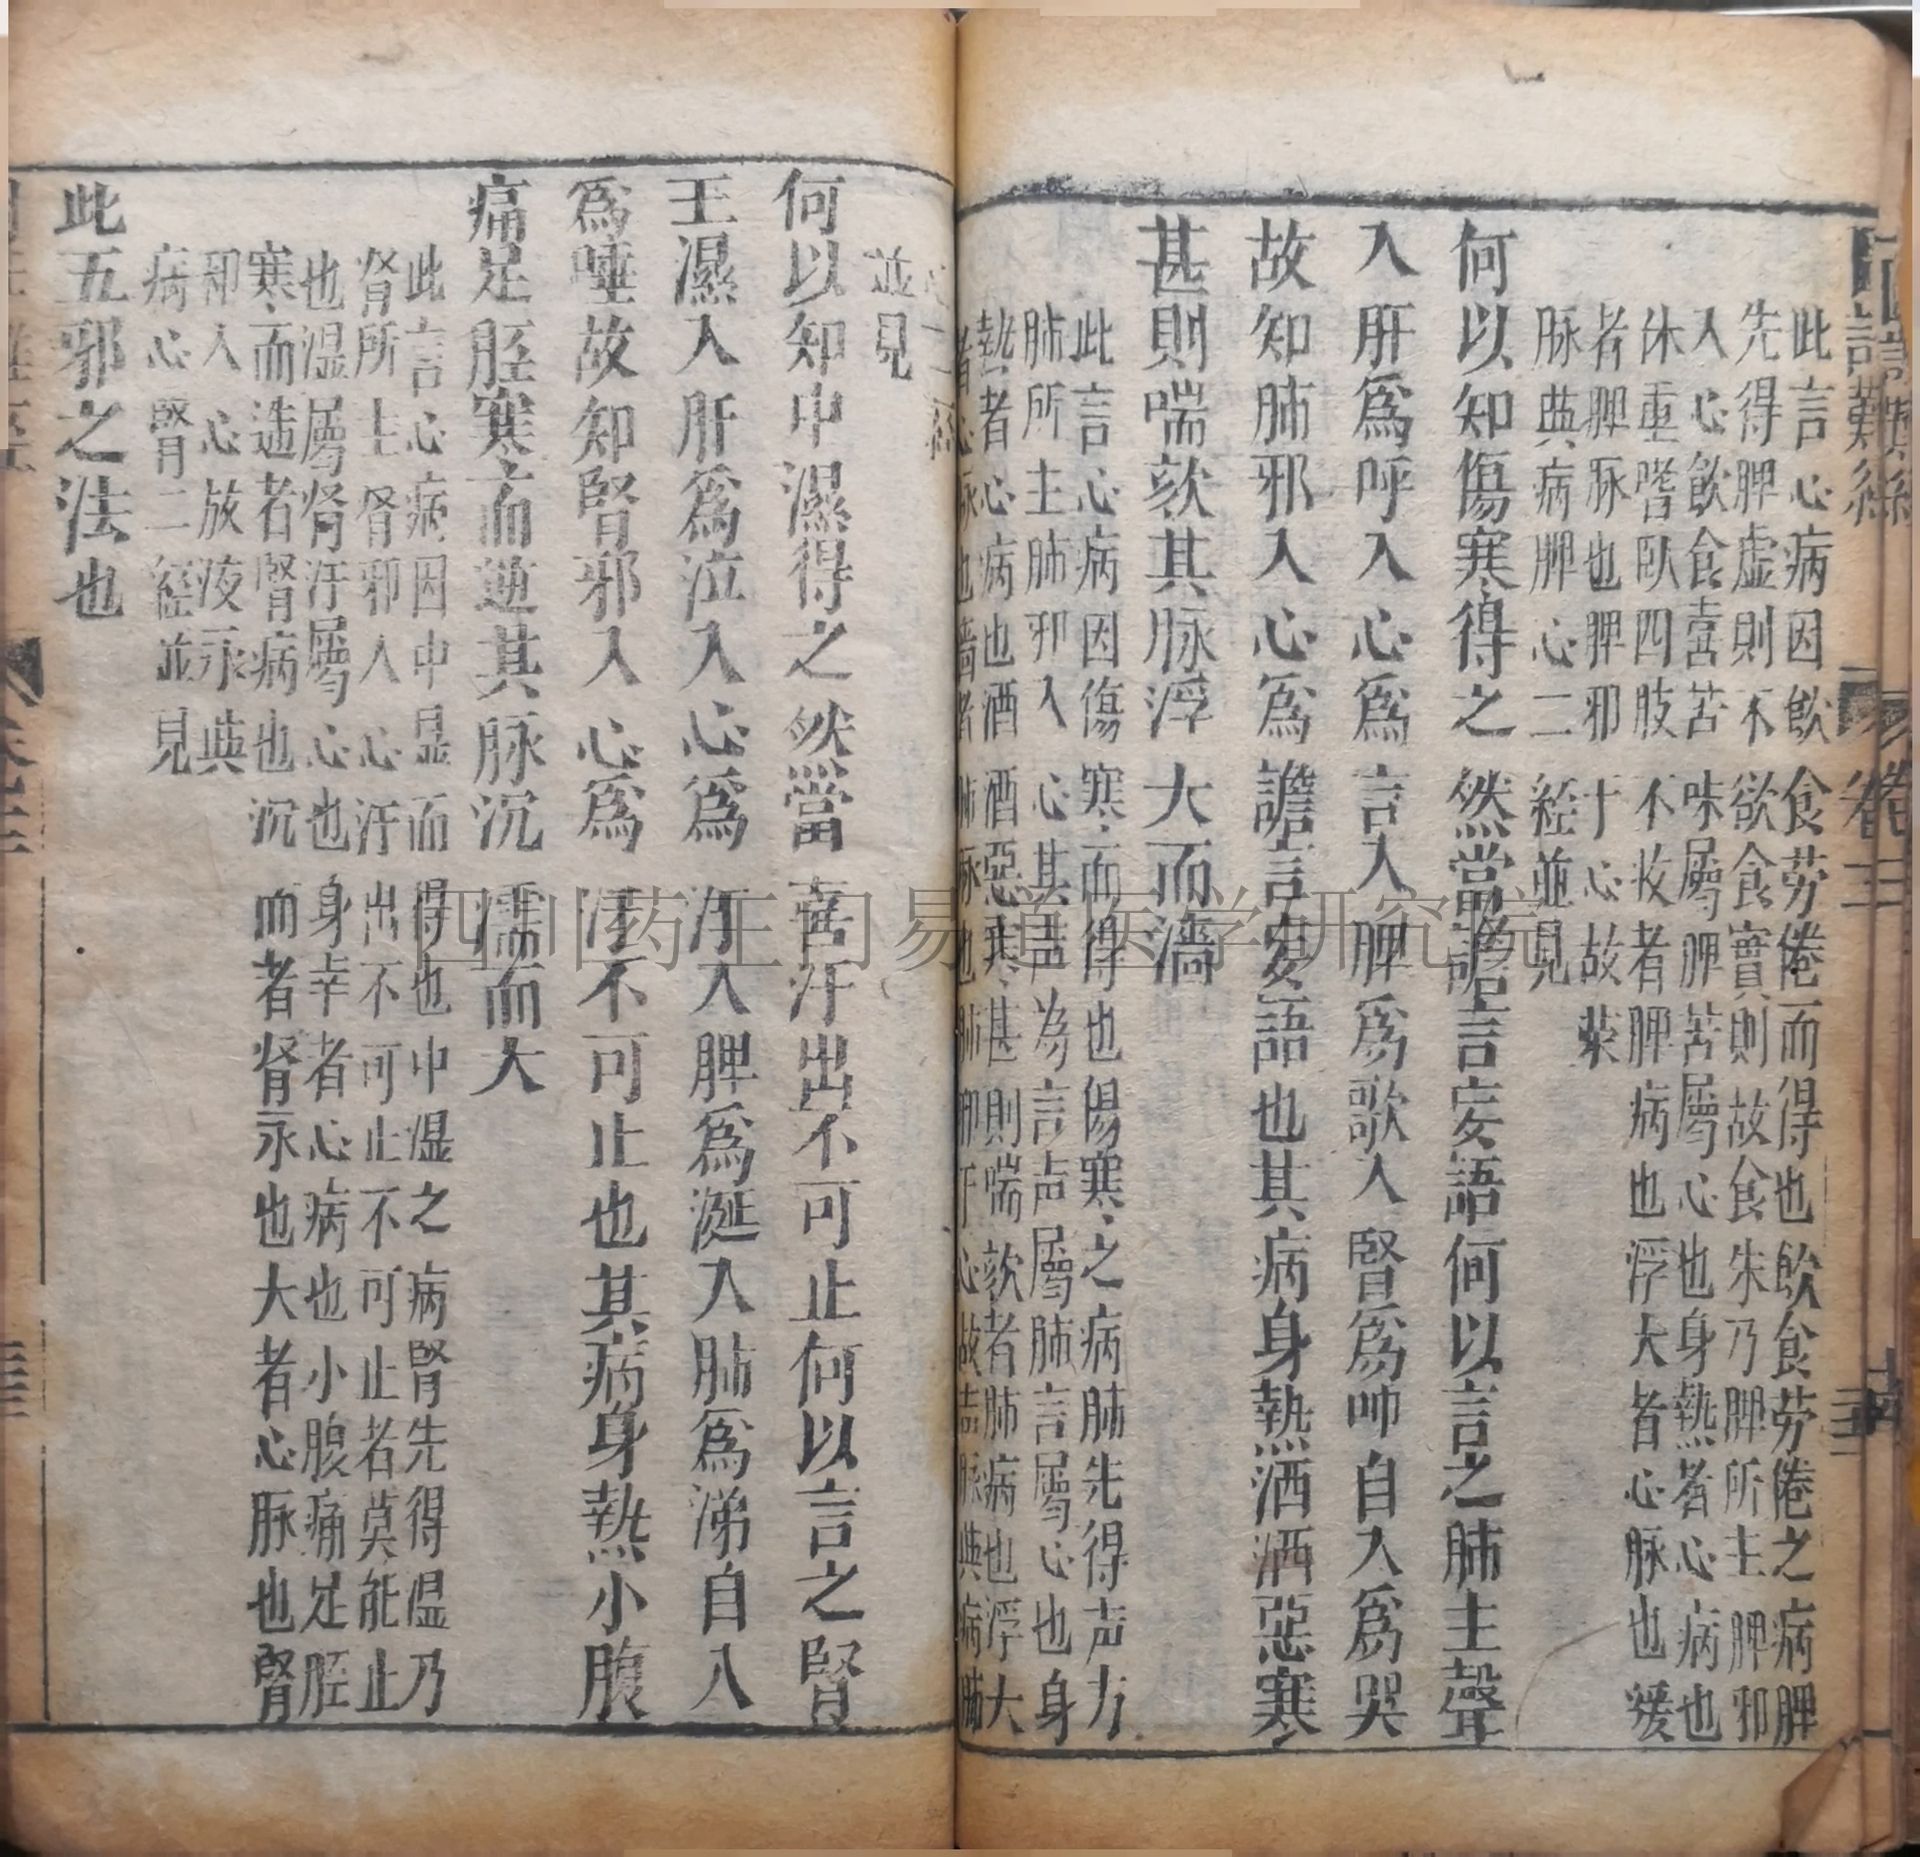 此言心病因飲食劳倦而得也飲食劳倦之病脾
先得脾虚則不欲食實則故食朱乃脾所主脾邪
入心飲食喜苦味屬脾苦屬心也身熱者心病也
体重嗜卧四肢不收者脾病也浮大者心脉也緩
者脾脉也脾邪于心故
脉典病脾心二経並見
何以知傷寒得之然當譫言妄語何以言之肺主聲
入肝爲呼入心爲言入脾爲歌入腎爲呻自入爲哭
故知肺邪入心爲譫言妄語也其病身熱洒洒惡寒
甚則喘欬其脉浮大而濇
此言心病因傷寒而得也傷寒之病肺先得声力
肺所主肺邪入心其声為言声屬肺言屬心也身
熱者心病也洒洒惡寒甚則喘欬者肺病也浮大
並見
何以知中濕得之然當喜汗出不可止何以言之腎
王濕入肝爲泣入心爲汗入脾爲涎入肺爲涕自入
爲唾故知腎邪入心爲汗不可止也其病身熱小腹
痛足胫寒而逆其脉沉濡而大
此言心病因中湿而得也中湿之病腎先得湿乃
肾所主肾邪入心汗出不可止不可止者莫能止
也湿屬肾汗屬心也身幸者心病也小腹痛足胫
寒而逆者腎病也沉而者肾永也大者心脉也腎
卻入心放液永典
病心腎二経並見
此五邪之法也
卷三
四川药王日易道医学研究院